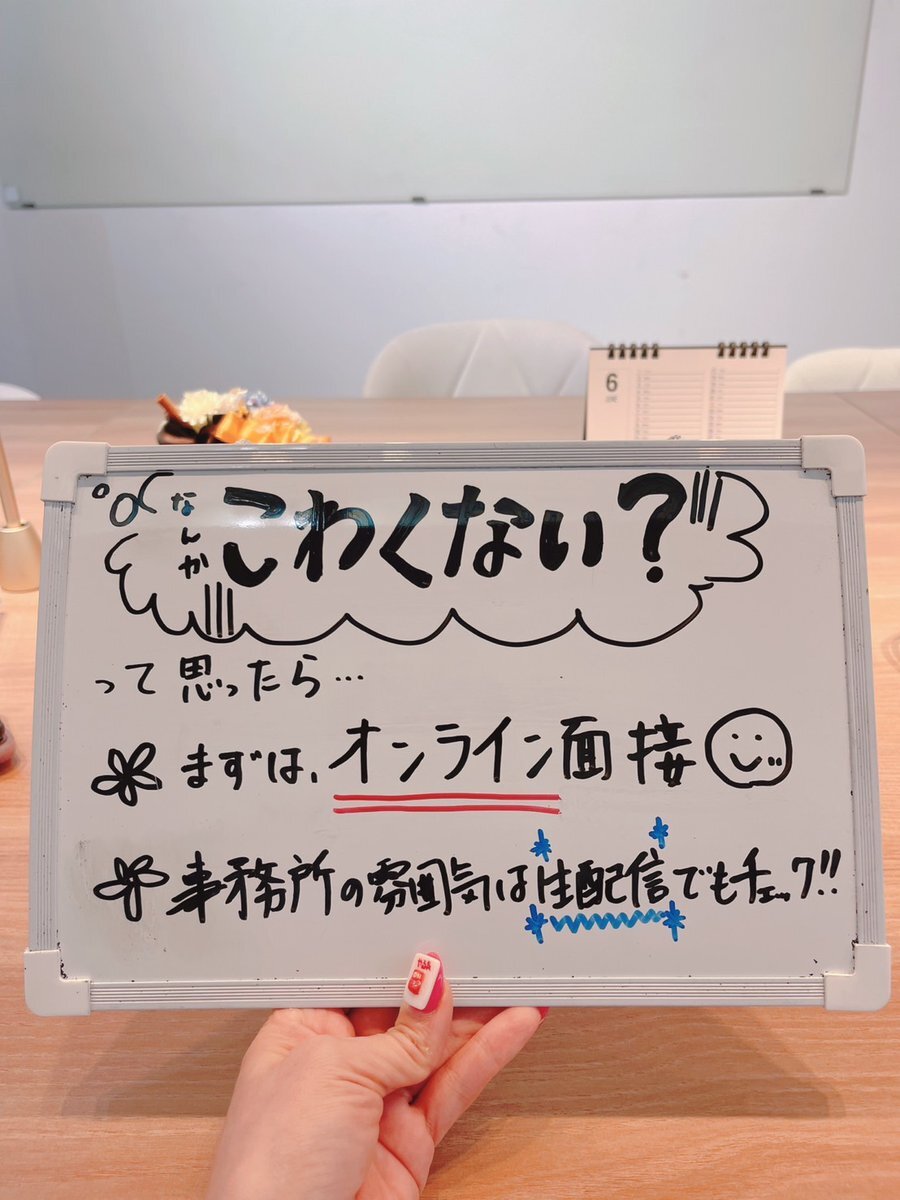 なんか こわくない?
って思ったら…
まずは、オンライン面接
事務所の雰囲気は生配信でもチェック!!
6